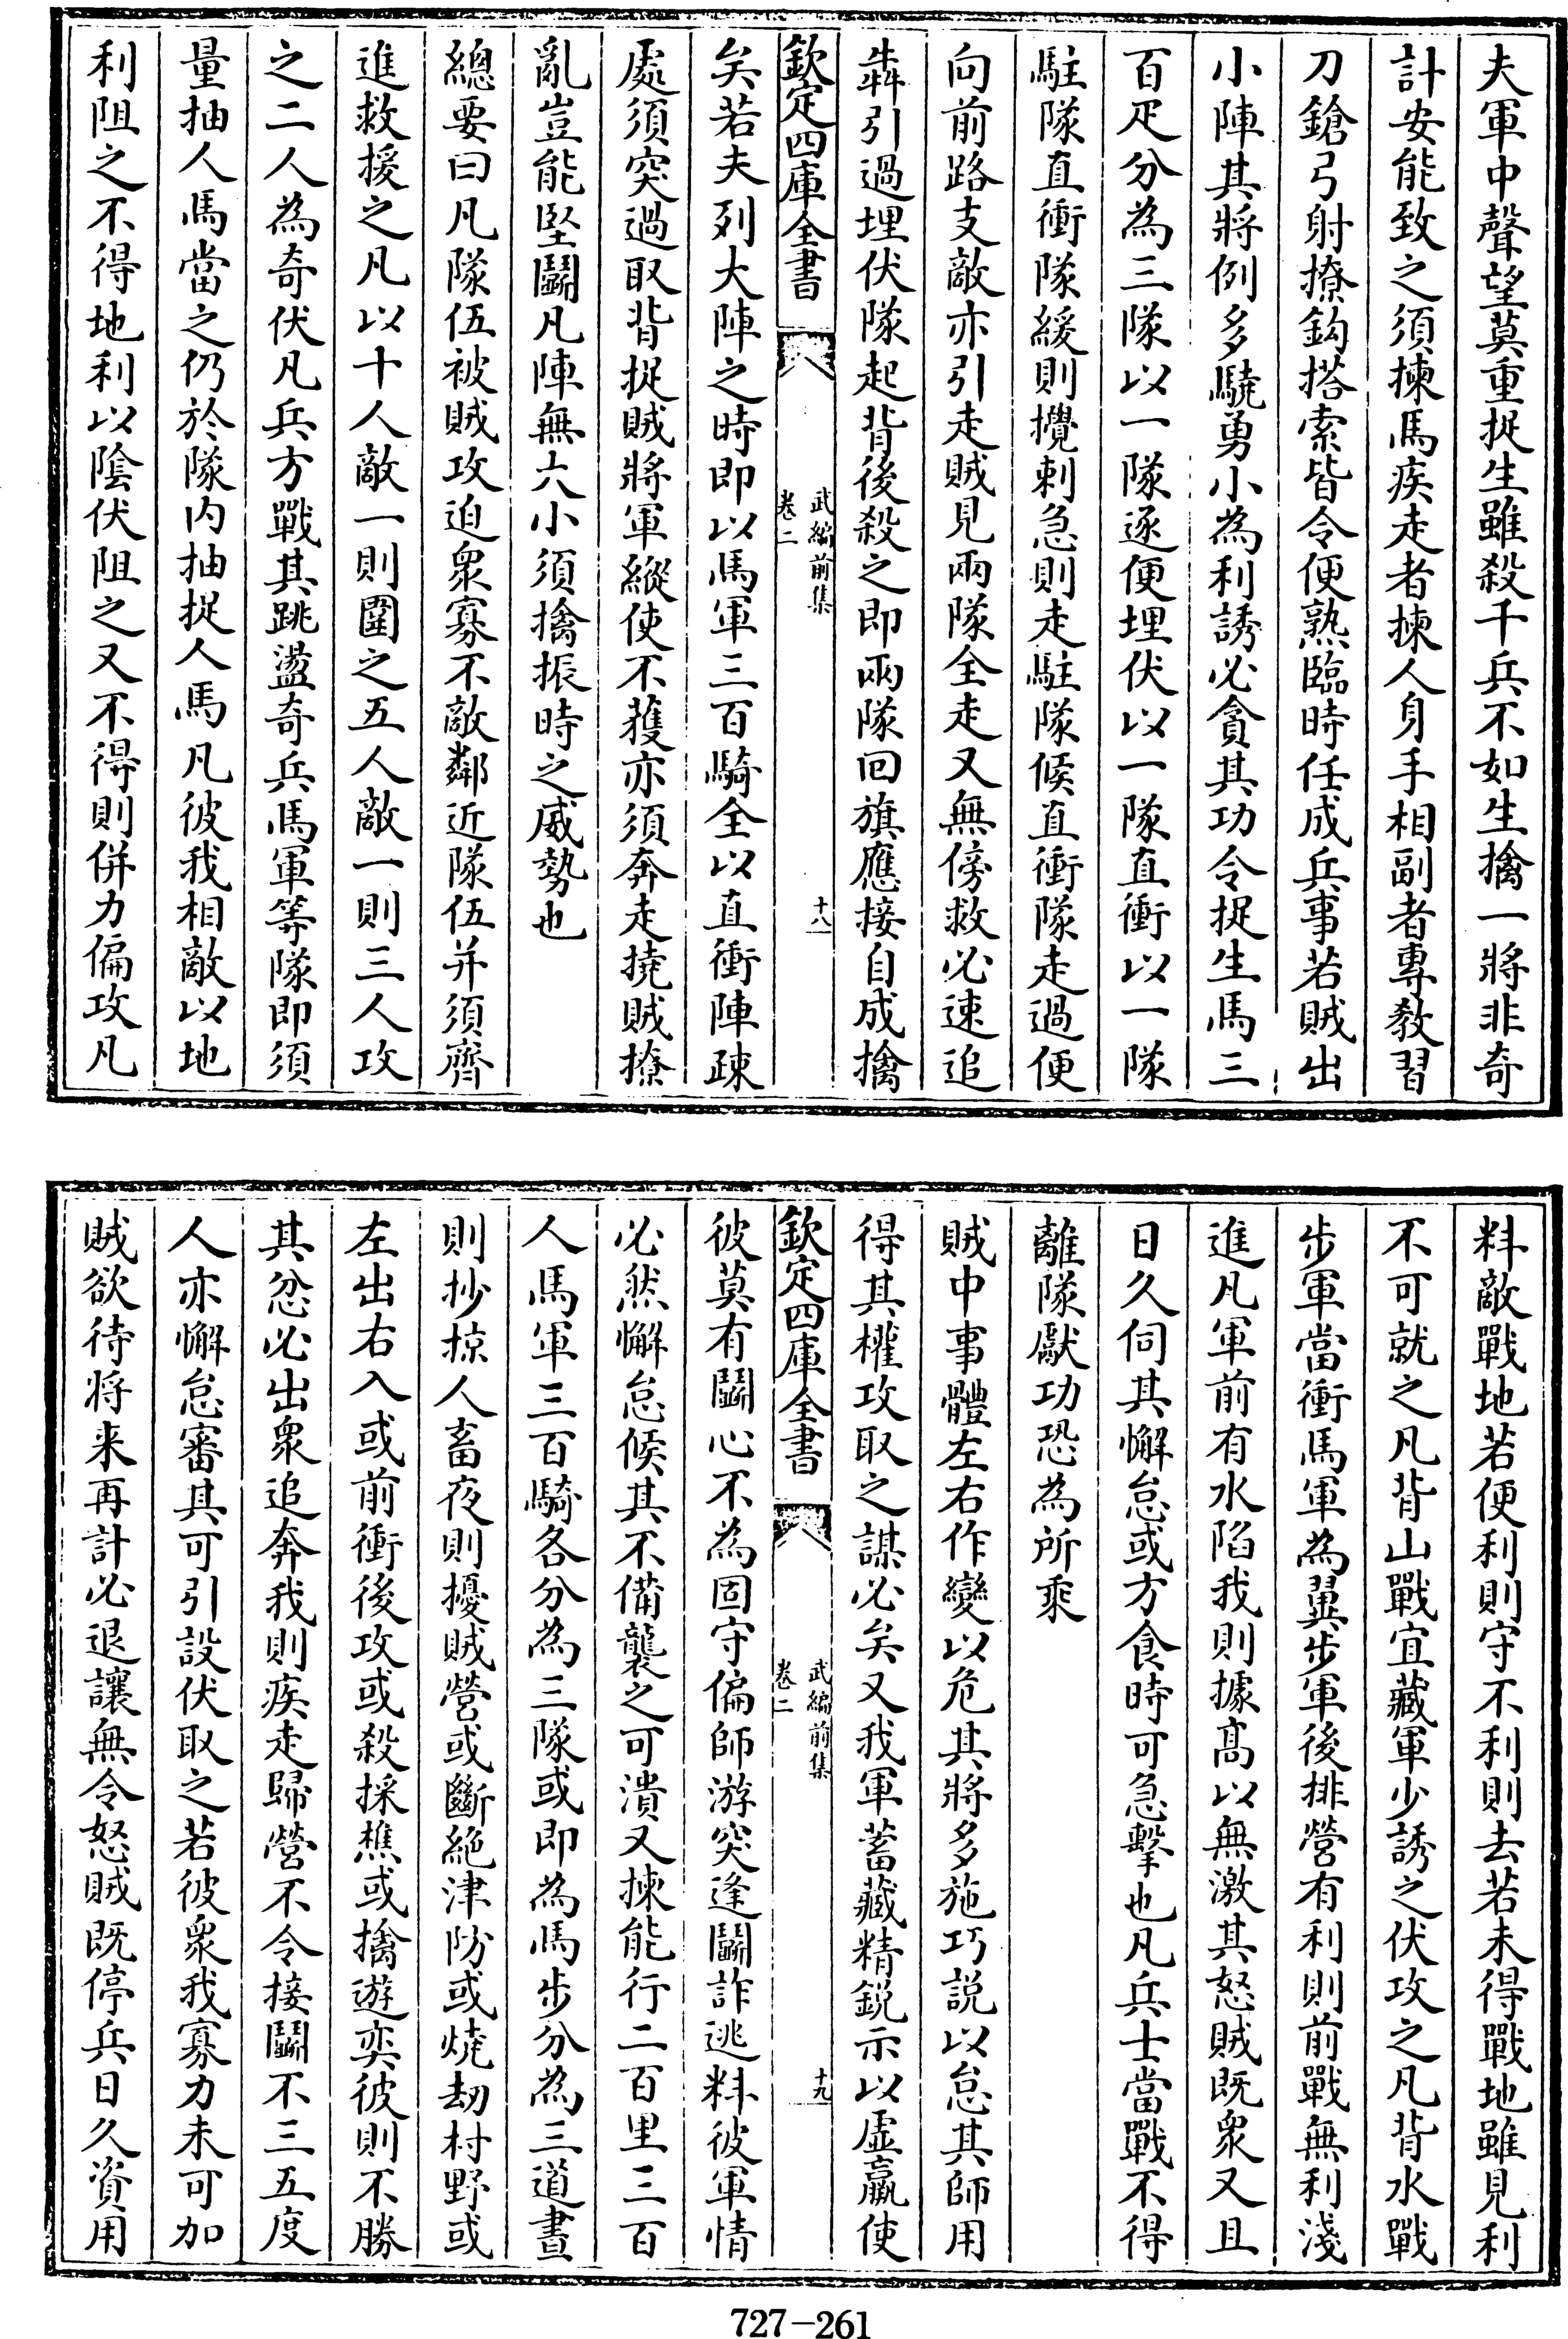 夫軍中聲望莫重捉生雖殺千兵不如生擒一將非奇
計安能致之須揀馬疾走者揀人身手相副者專教習
刀鎗弓射撩鈎搭索皆令便熟臨時任成兵事若賊出
小陣其將例多驍勇小為利誘必貪其功令捉生馬三
百疋分為三隊以一隊逐便埋伏以一隊直衝以一隊
駐隊直衝隊緩則攪刺急則走駐隊候直衝隊走過便
向前路支敵亦引走賊見兩隊全走又無傍救必速追
犇引過埋伏隊起背後殺之即兩隊回旗應接自成擒
欽定四庫全書
武編前集
卷二
十八
矣若夫列大陣之時即以馬軍三百騎全以直衝陣疎
處須突過取背捉賊將軍縱使不獲亦須奔走撓賊撩
亂豈能堅鬭凡陣無大小須擒振時之威勢也
總要曰凡隊伍被賊攻迫衆寡不敵鄰近隊伍并須齊
進救援之凡以十人敵一則圍之五人敵一則三人攻
之二人為奇伏凡兵方戰其跳盪奇兵馬軍等隊即須
量抽人馬當之仍於隊內抽捉人馬凡彼我相敵以地
利阻之不得地利以陰伏阻之又不得則併力偏攻凡
料敵戰地若便利則守不利則去若未得戰地雖見利
不可就之凡背山戰宜藏軍少誘之伏攻之凡背水戰
步軍當衝馬軍為翼步軍後排營有利則前戰無利淺
進凡軍前有水陷我則據高以無激其怒賊既衆又且
日久伺其懈怠或方食時可急擊也凡兵士當戰不得
離隊獻功恐為所乘
賊中事體左右作變以危其將多施巧説以怠其師用
得其權攻取之謀必矣又我軍蓄藏精鋭示以虛羸使
欽定四庫全書
武編前集
卷二
十九
彼莫有鬭心不為固守偏師游突逢鬭詐逃料彼軍情
必然懈怠候其不備襲之可潰又揀能行二百里三百
人馬軍三百騎各分為三隊或即為馬步分為三道晝
則抄掠人畜夜則擾賊營或斷絶津防或燒刼村野或
左出右入或前衝後攻或殺採樵或擒遊奕彼則不勝
其忿必出衆追奔我則疾走歸營不令接鬭不三五度
人亦懈怠審其可引設伏取之若彼衆我寡力未可加
賊欲待將来再計必退讓無令怒賊既停兵日久資用
727-261